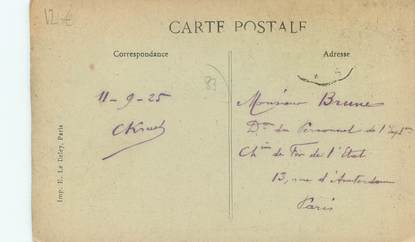 12 €
CARTE POSTALE
Correspondance
Adresse
83
11-9-25
Monsieur Brune
Dr du Personnel de l'
Chin de Fer de l'Etat
13, rue d'Amsterdam
Paris
Imp. E. Le Deley, Paris